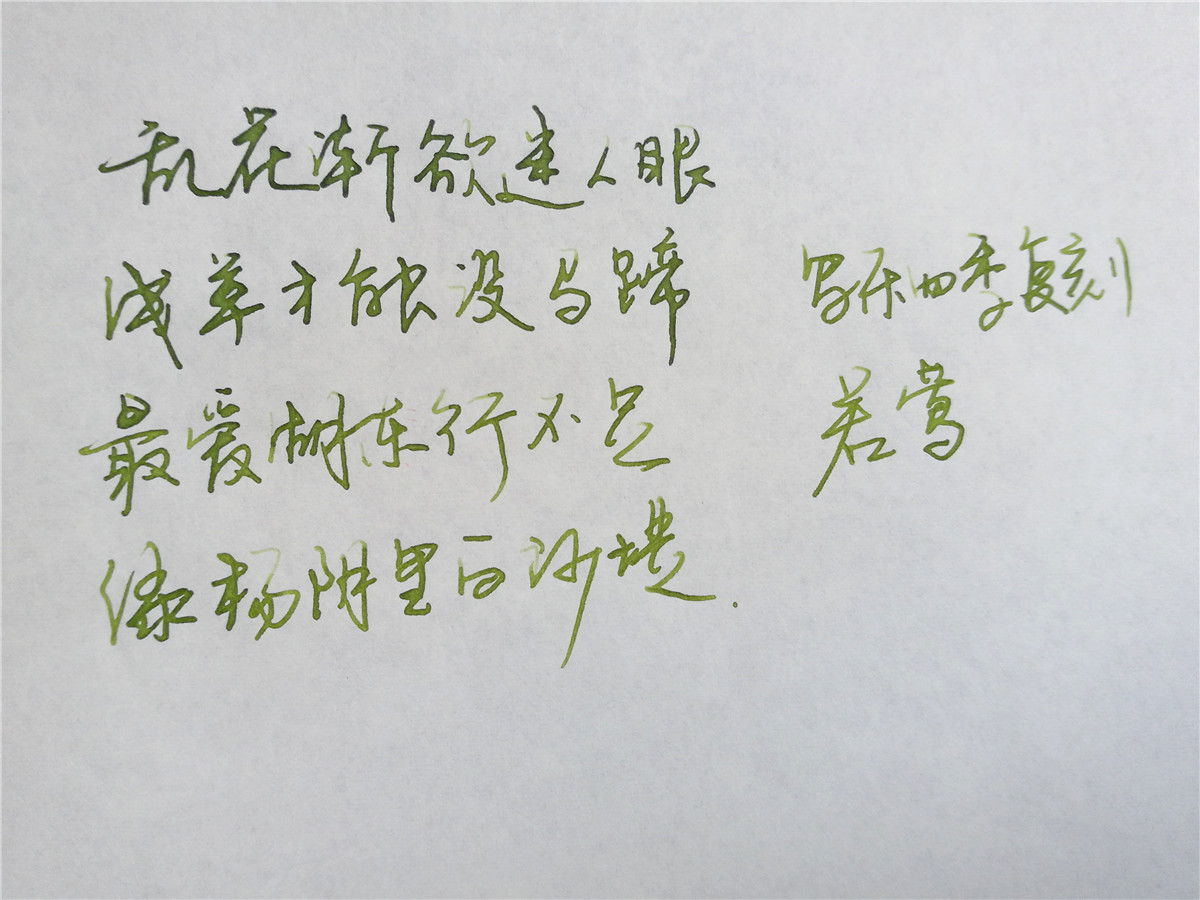 乱花渐欲迷人眼
浅草才能没马蹄
最爱湖东行不足
绿杨阴里白沙堤.
写乐四季复刻
若莺